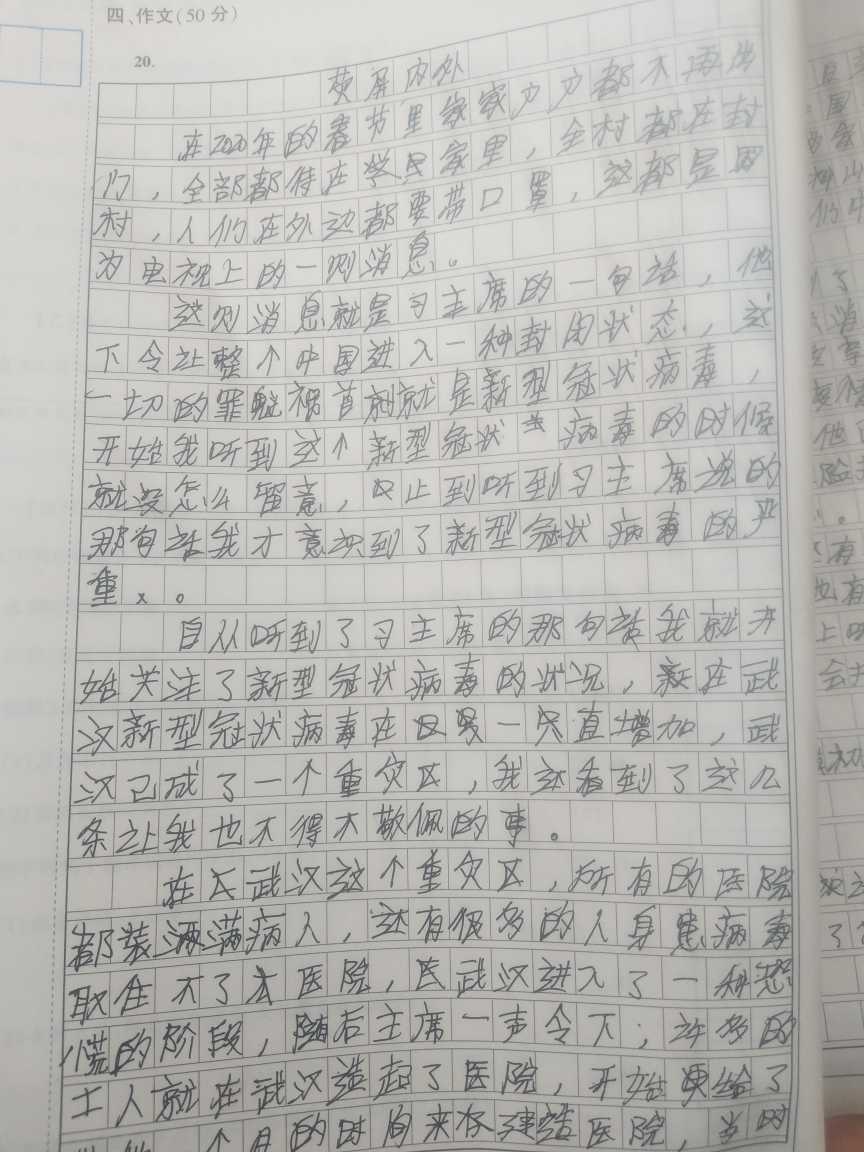 四、作文(50分)
20.
荧屏内外
在2020年的春节里家家户户都不再出
门，全部都待在自家里，全村都在封
村，人们在外边都要带口罩，这都是因
为电视上的一则消息。
这则消息就是习主席的一句话，他
下令让整个中国进入一种封闭状态，这
一切的罪魁祸首就是新型冠状病毒，
开始我听到这个新型冠状病毒的时候
就没怎么留意，只止到听到习主席说的
那句话我才意识到了新型冠状病毒的严
重。
自从听到了习主席的那句话我就开
始关注了新型冠状病毒的状况，在武
汉新型冠状病毒在一只直增加，武
汉已成了一个重灾区，我还看到了这么
条让我也不得不敬佩的事。
在武汉这个重灾区，所有的医院
都装满病人，还有很多的人身患病毒
取住不了医院，武汉进入了一种恐
慌的阶段，随后主席一声令下，许多的
工人就在武汉造起了医院，开始更给了
个月的时间来建造医院，当时